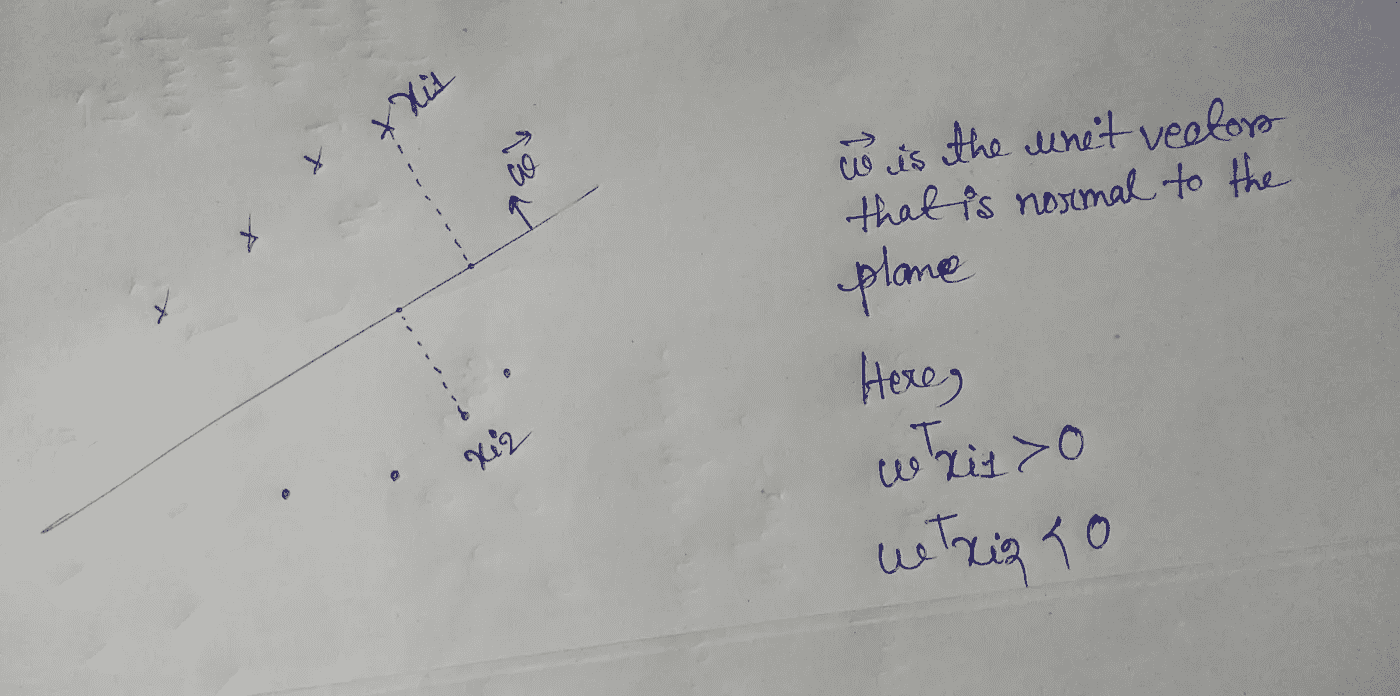 xi1
w⃗
xi2
w⃗ is the unit vector
that is normal to the
plane
Here,
wᵀxi1 > 0
wᵀxi2 < 0